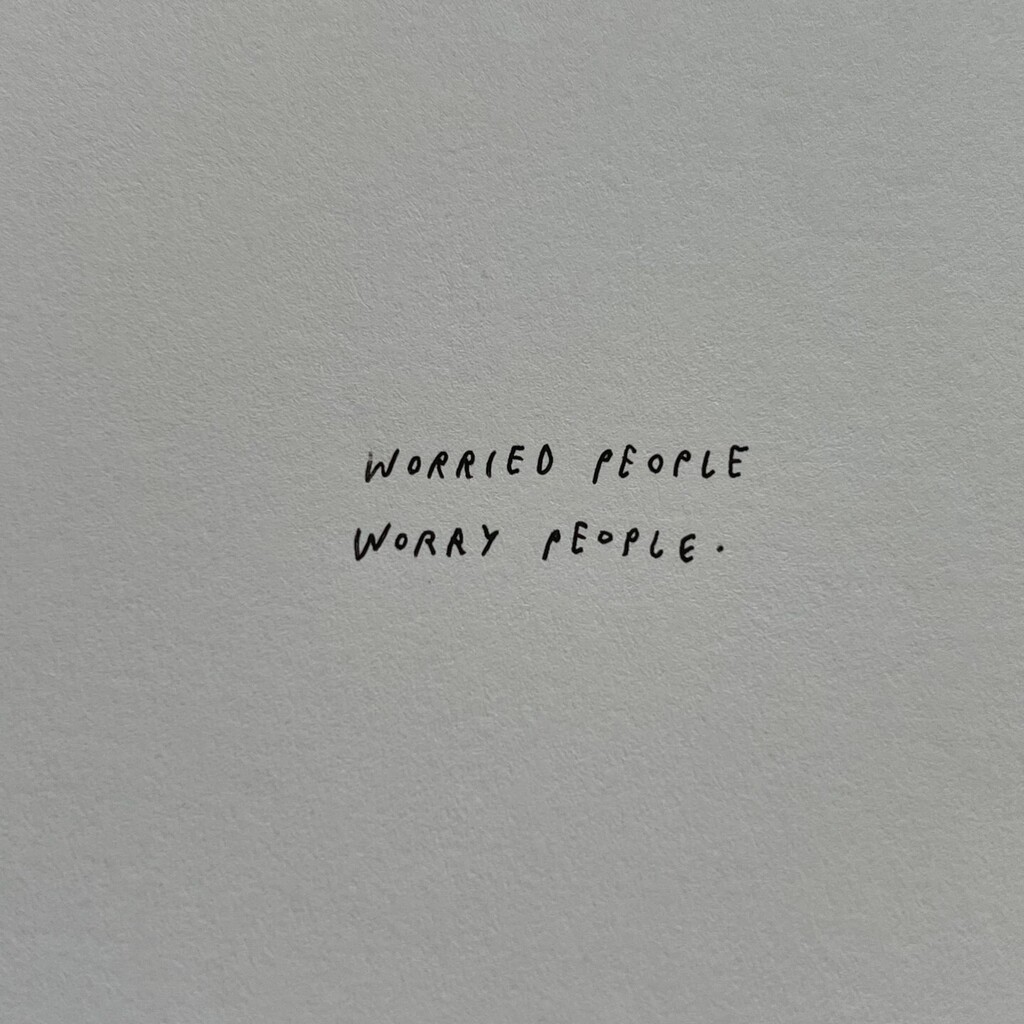 WORRIED PEOPLE
WORRY PEOPLE.